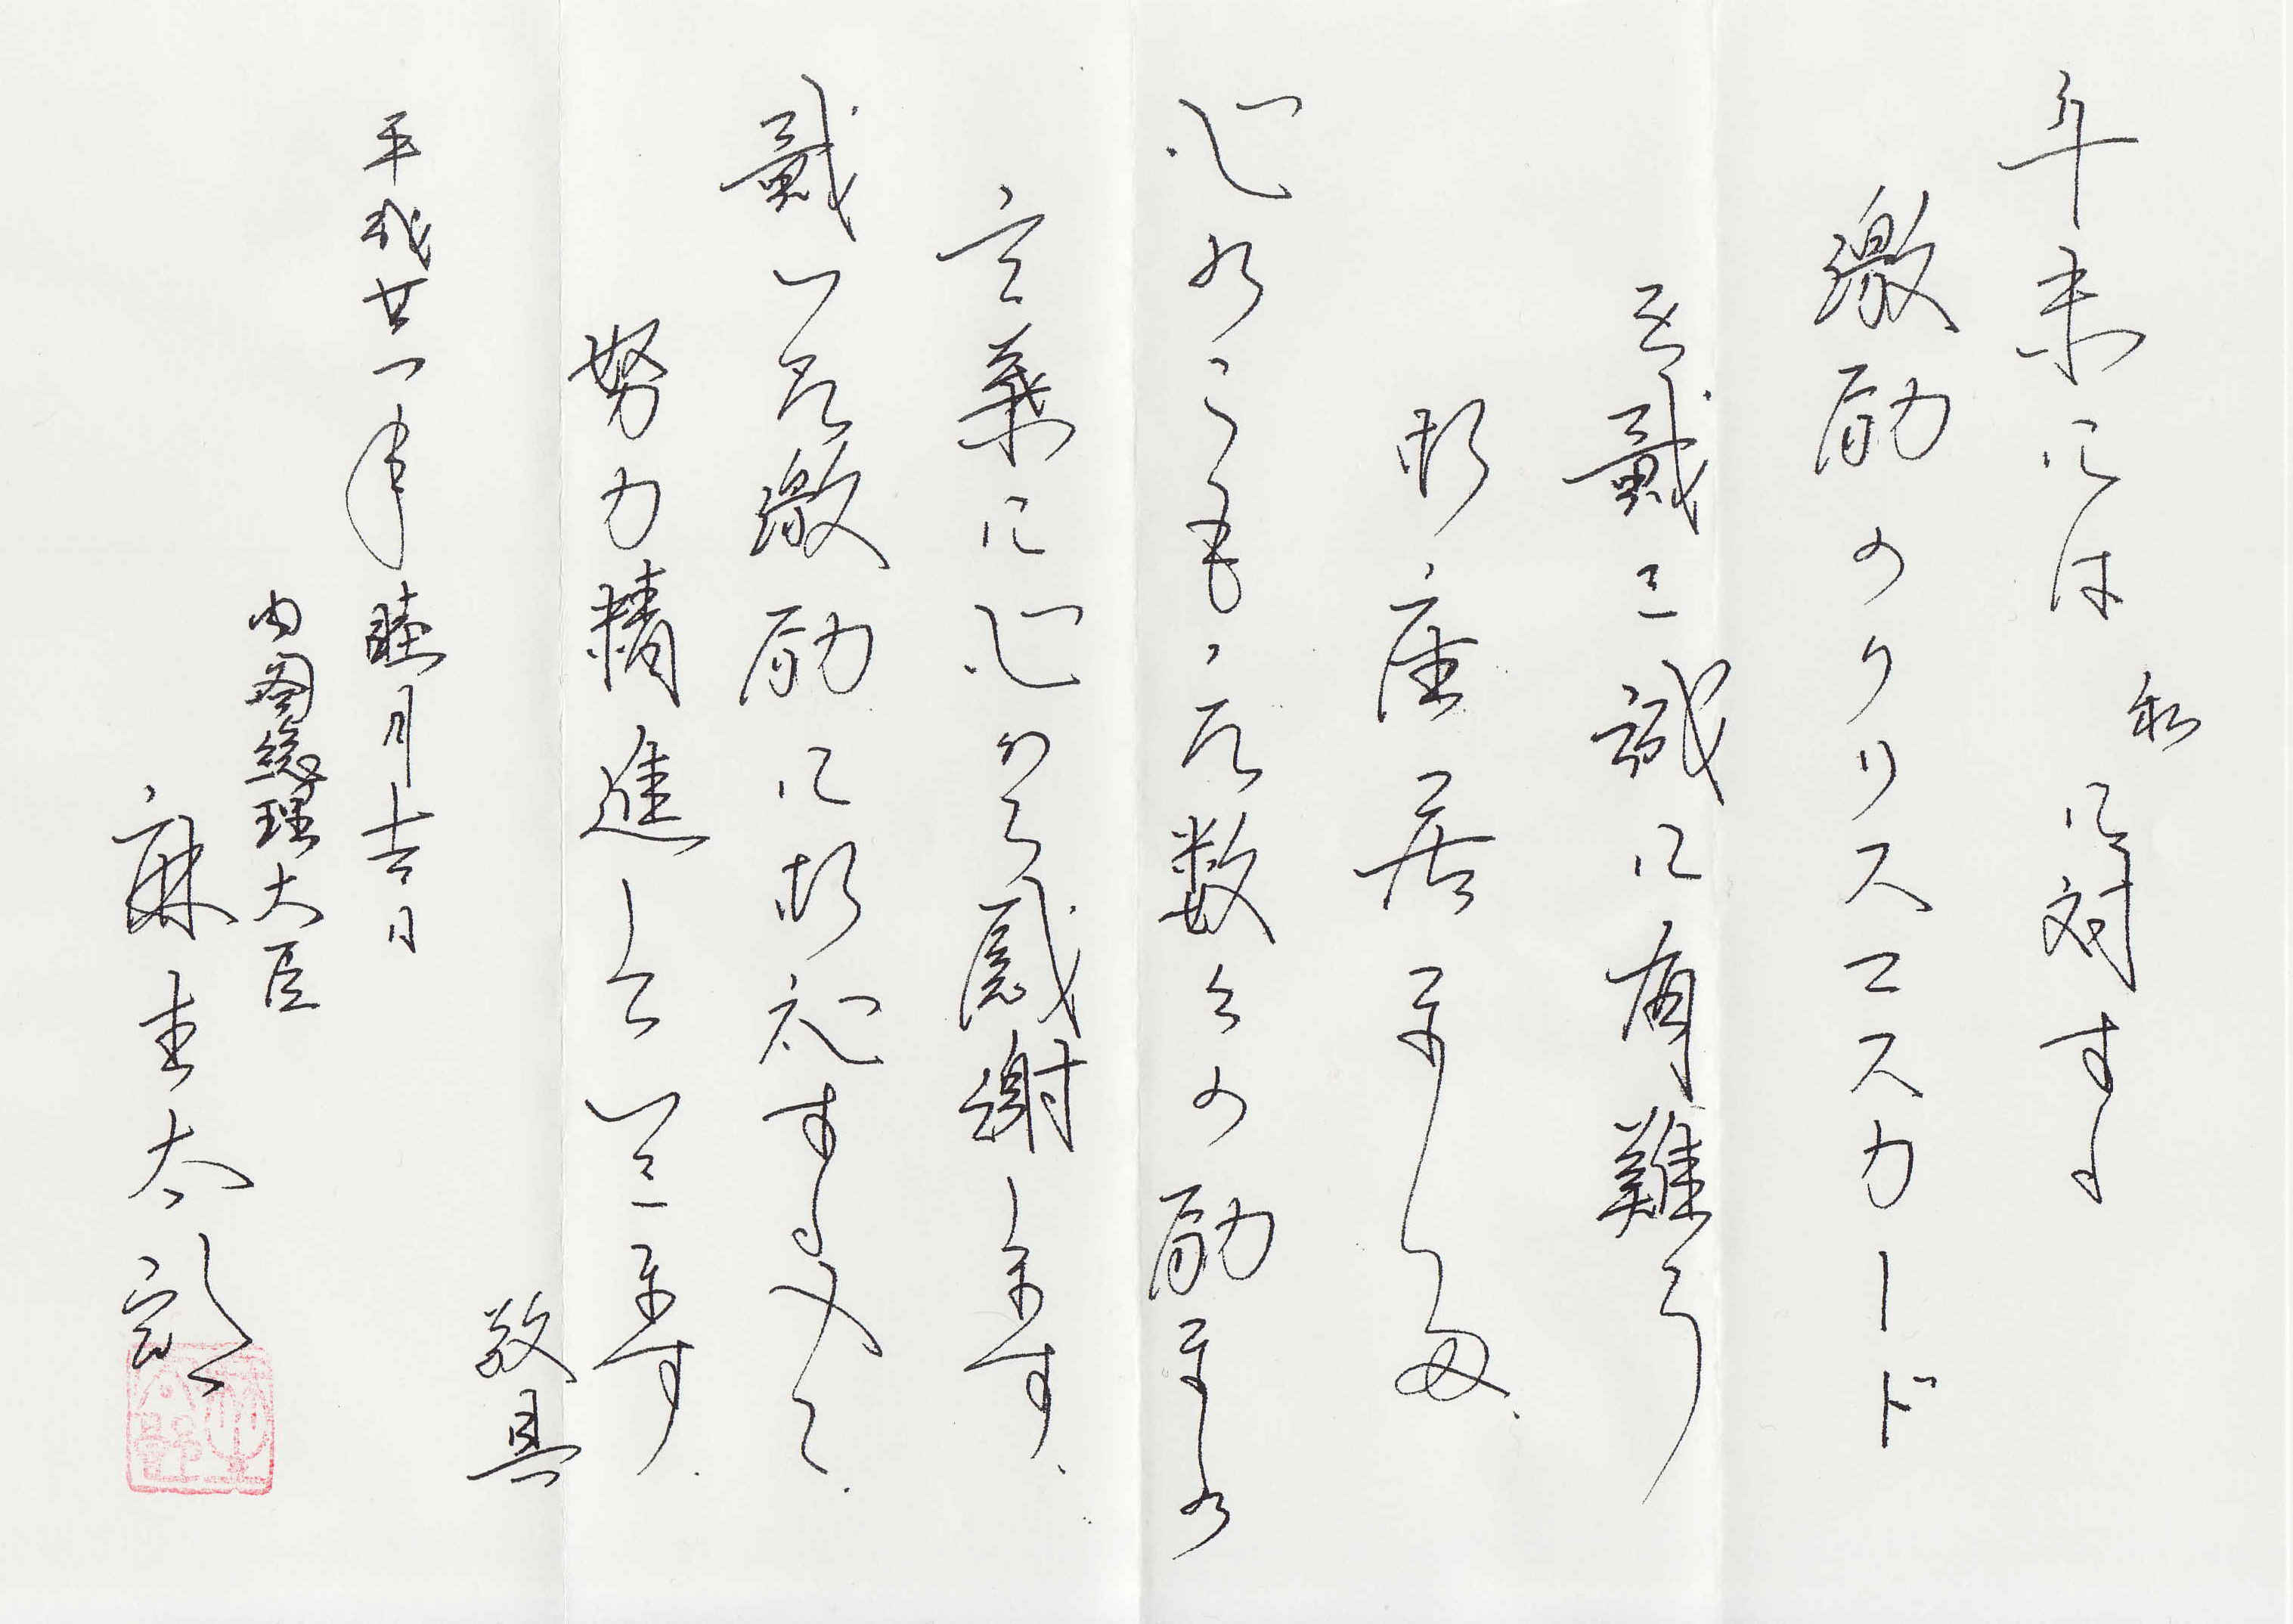 年末には私に対する
激励のクリスマスカード
を戴き誠に有難う
御座居ました。
心のこもった数々の励ましの
言葉に心から感謝します。
戴いた激励に御応するべく
努力精進していきます。
敬具
平成廿一年睦月吉日
内閣総理大臣
麻生太郎